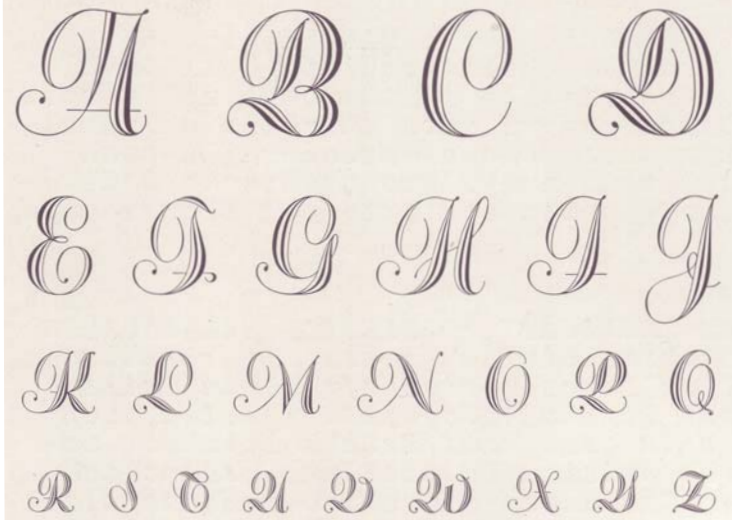 A B C D
E F G H I J
K L M N O P Q
R S T U V W X Y Z